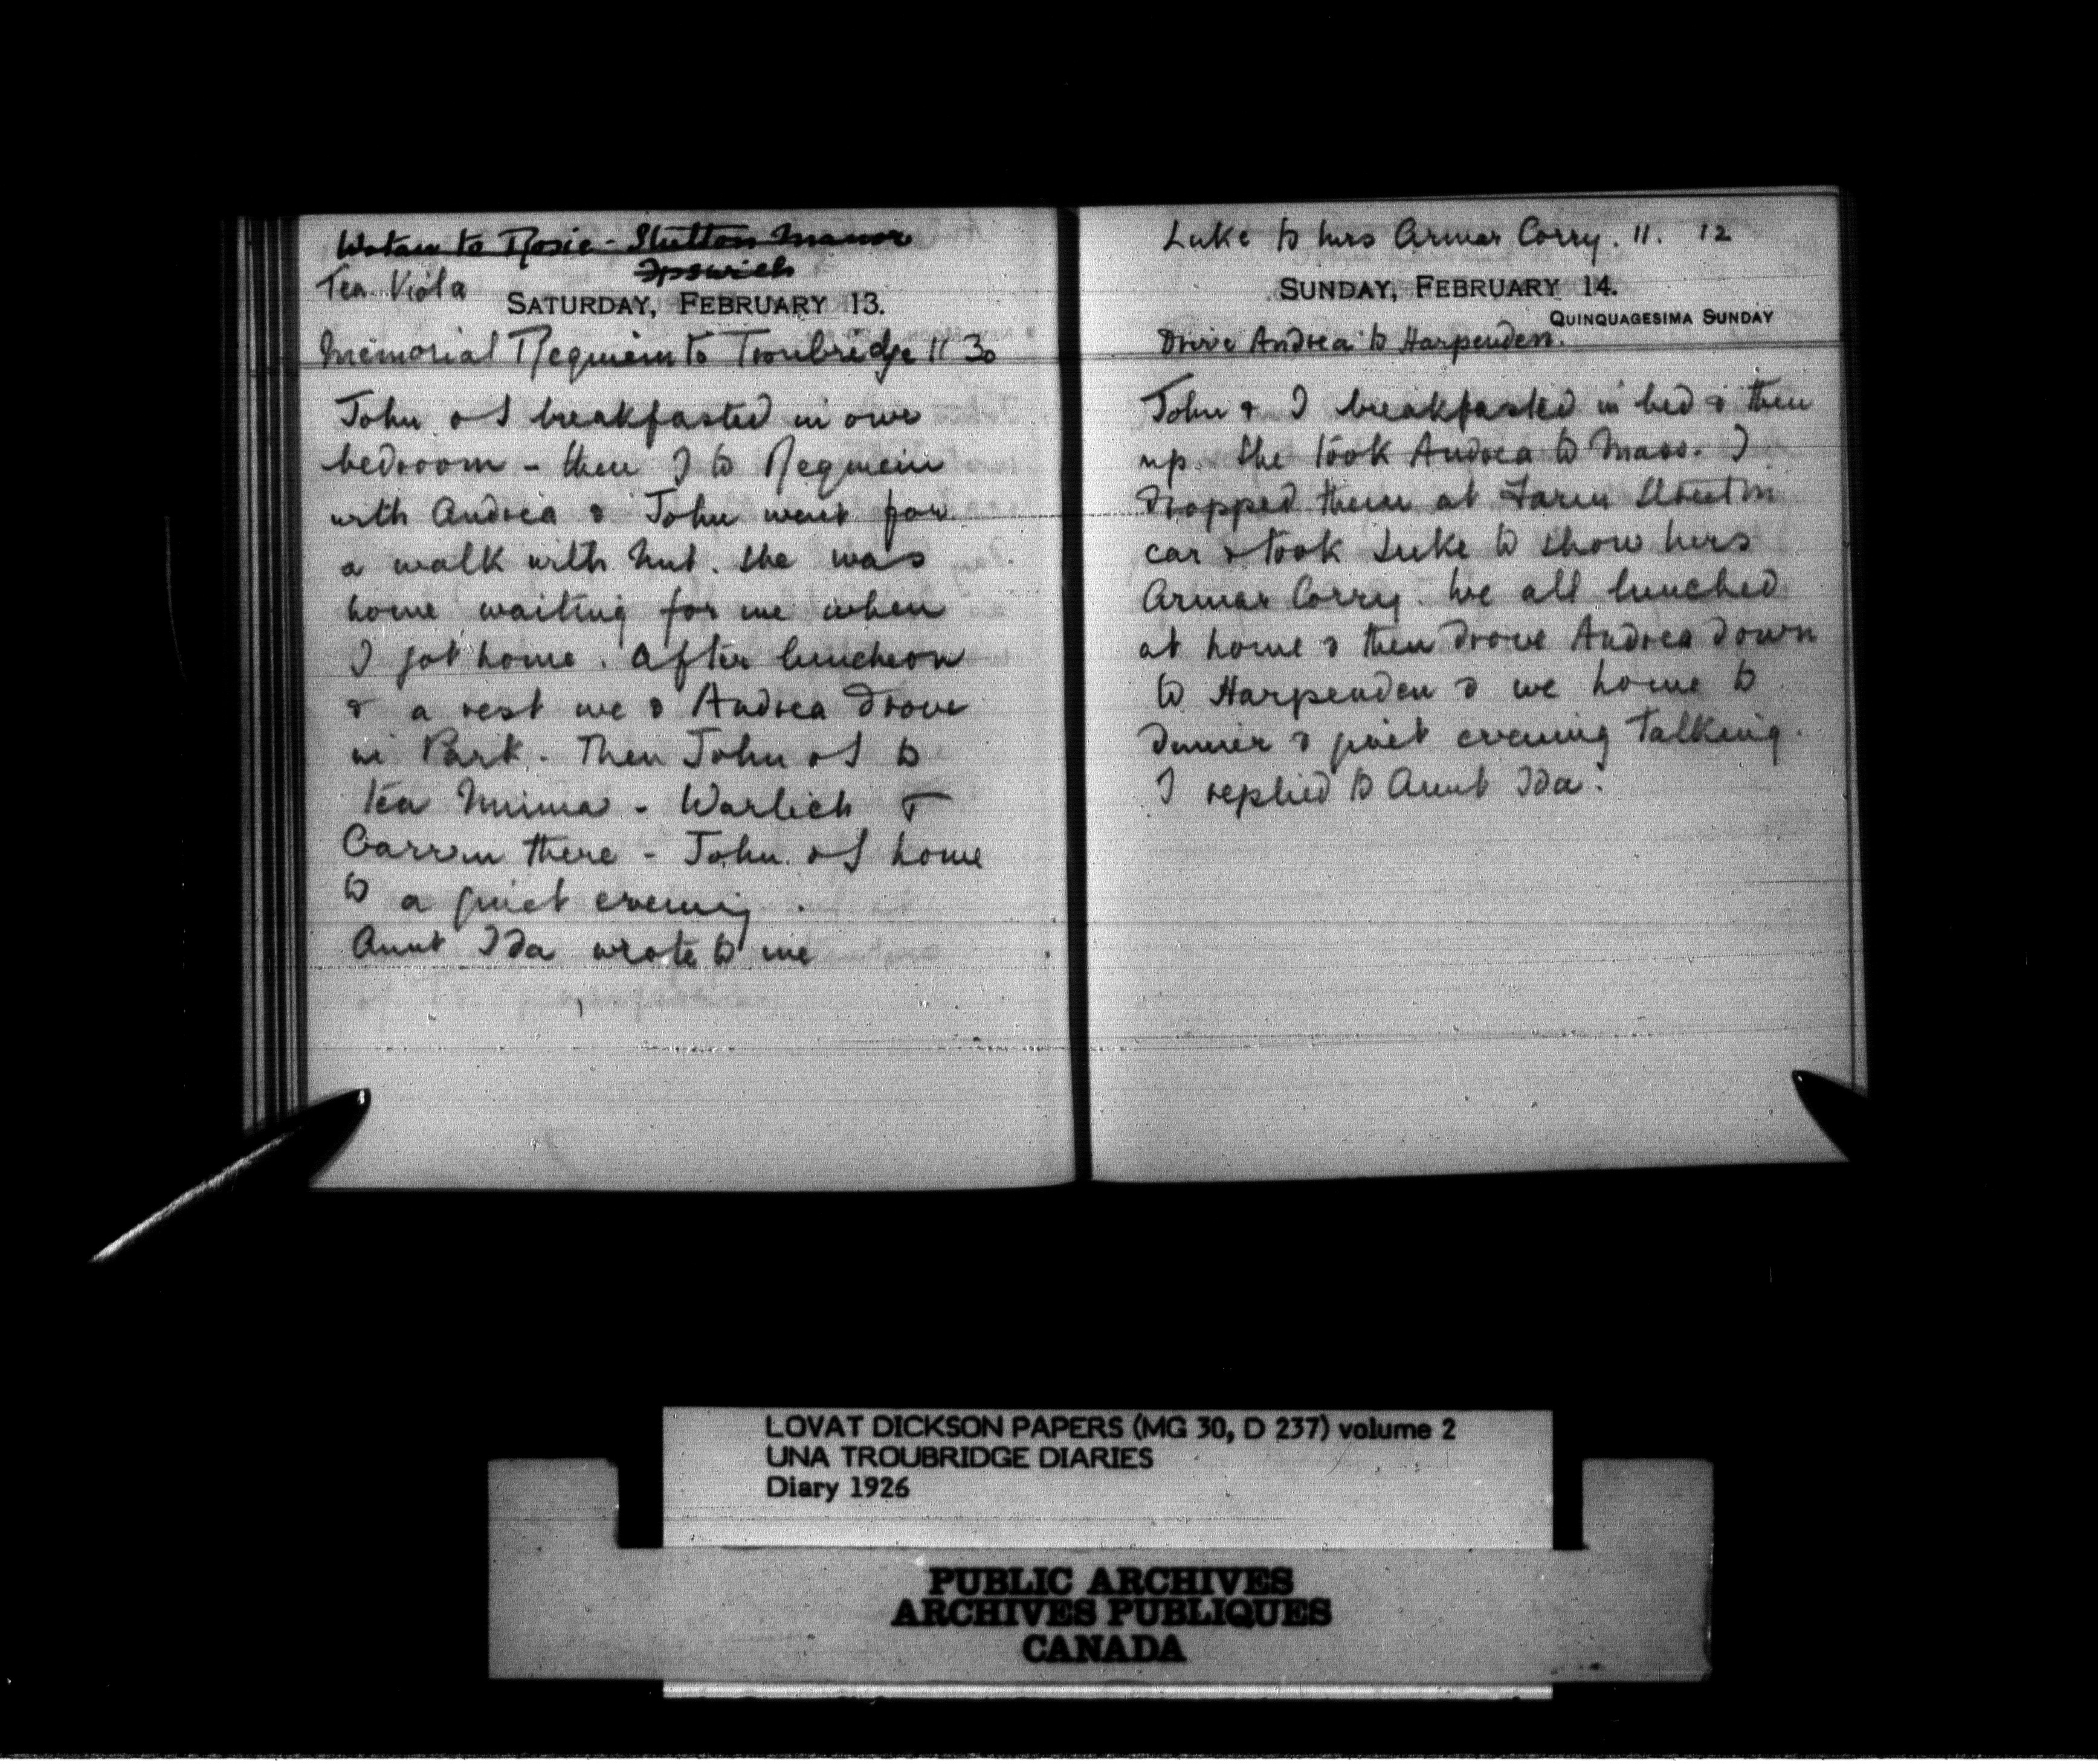 Wotan to Rosie - Stutton Manor
Ipswich
Tea Viola
SATURDAY, FEBRUARY 13.
Memorial Requiem to Troubridge 11 30
John & I breakfasted in our
bedroom - then I to Requiem
with Andrea & John went for
a walk with Nut. She was
home waiting for me when
I got home. After luncheon
& a rest we & Andrea drove
in Park. Then John & I to
tea Minna - Warlich &
there - John & I home
to a quiet evening.
Aunt Ida wrote to me
Luke to Mrs Armar Corry. 11. 12
SUNDAY, FEBRUARY 14.
QUINQUAGESIMA SUNDAY
Drive Andrea to Harpenden.
John & I breakfasted in bed & then
up. She took Andrea to Mass. I
dropped them at Farm Street in
car & took Luke to show Mrs
Armar Corry. We all lunched
at home & then drove Andrea down
to Harpenden & we home to
dinner & quiet evening talking.
I replied to Aunt Ida.
LOVAT DICKSON PAPERS (MG 30, D 237) volume 2
UNA TROUBRIDGE DIARIES
Diary 1926
PUBLIC ARCHIVES
ARCHIVES PUBLIQUES
CANADA